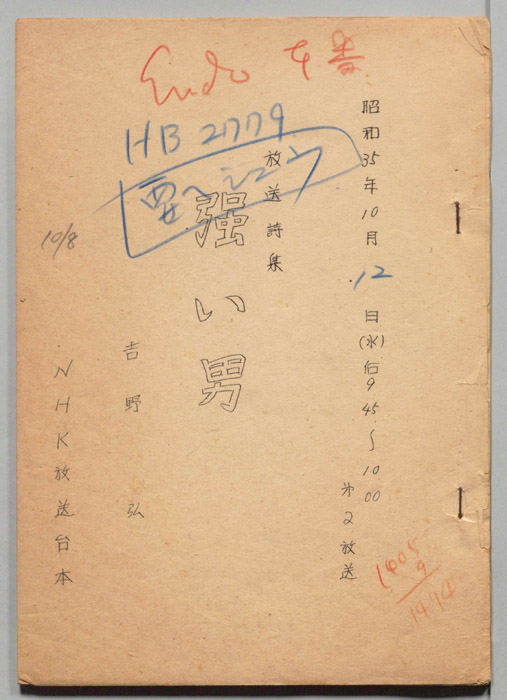 Endo 本番
HB 2779
昭和35年10月12日(水)后9.45〜10.00
第2放送
放送詩集
強い男
吉野弘
NHK放送台本
10/8